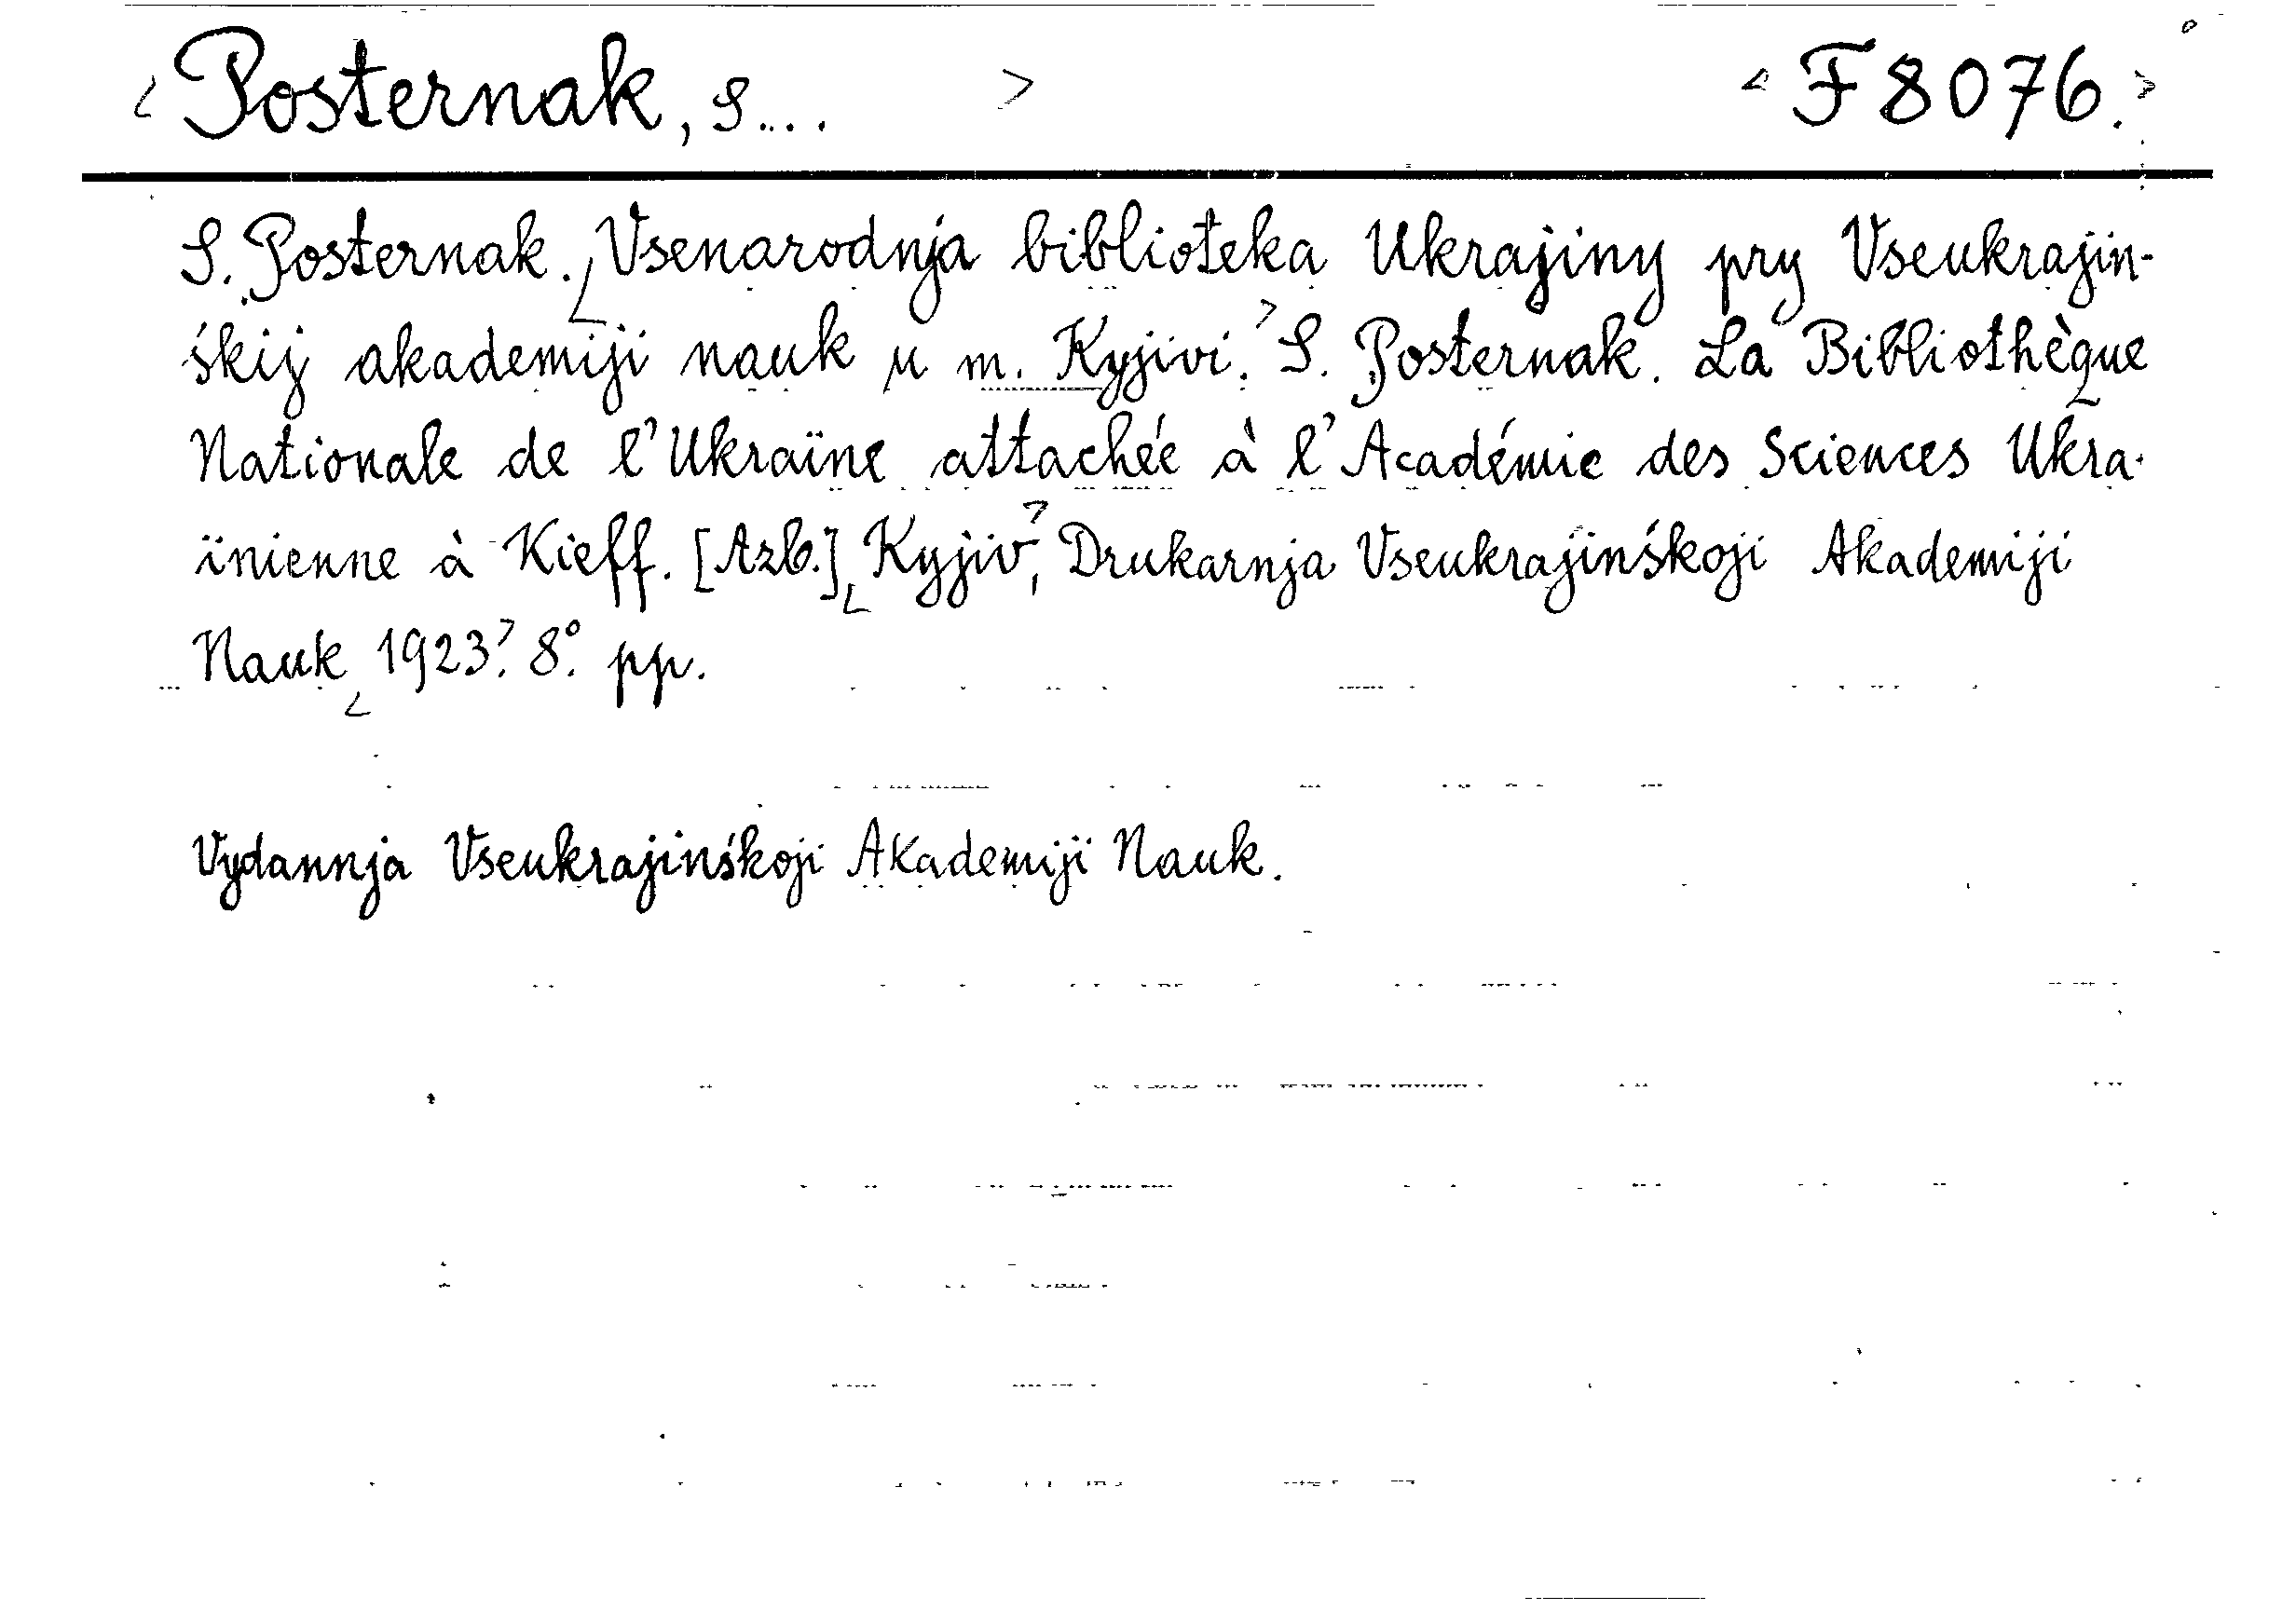 <Posternak, S... > <F 8076.>
S. Posternak. <Vsenarodnja biblioteka Ukrajiny pry Vseukrajin-
śkij akademiji nauk u m. Kyjivi.> S. Posternak. La Bibliothèque
Nationale de l'Ukraïne attachée à l'Académie des Sciences Ukra-
ïnienne à Kieff. [Azb.] <Kyjiv>, Drukarnja Vseukrajinśkoji Akademiji
Nauk <1923>. 8°. pp.
Vydannja Vseukrajinśkoji Akademiji Nauk.